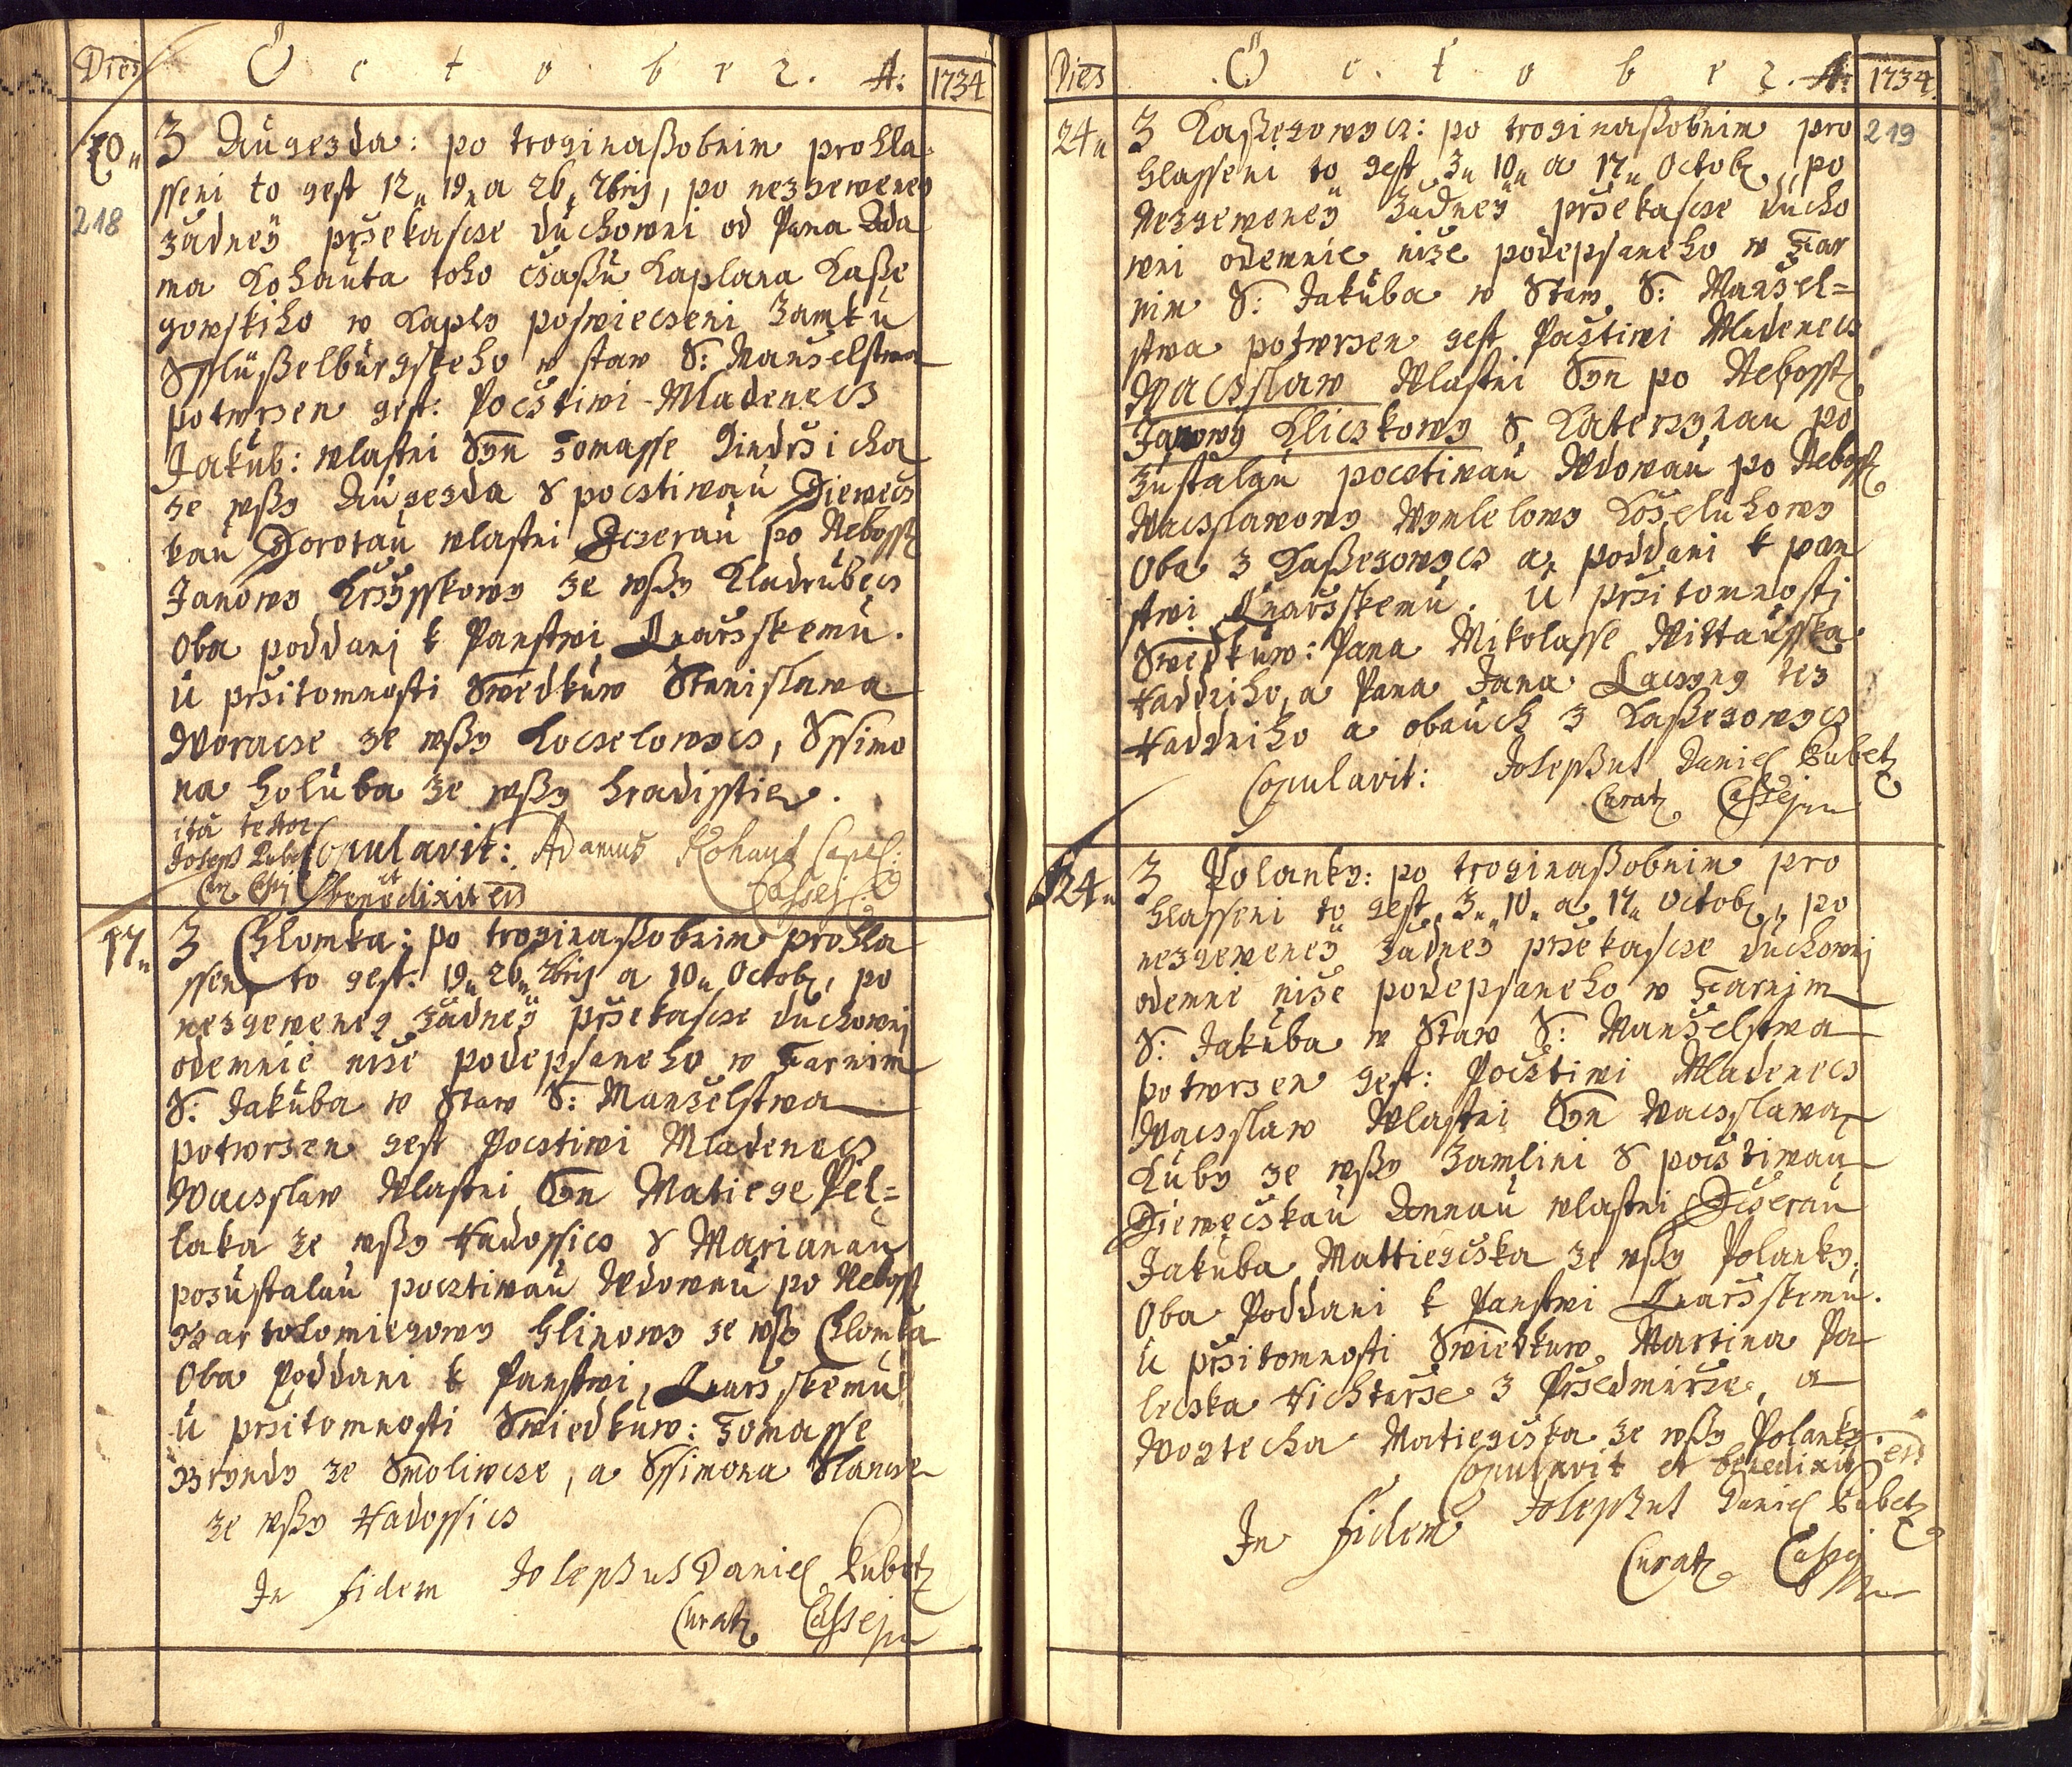 Dies October. A: 1734
10
218
Z Augezda: po troginaßobnim prohla
sseni to gest 12 19 a 26 7bris, po nezgeweney
žadney pržekascze duchowni od Pana Ada
ma Kohauta toho čzassu Kaplana Kaße
gowskiho w Kaply poswieczeni Zamku
Sslüßelbürgskeho w staw S: Manželstwa
potwrzen gest: Počztiwi Mladenecz
Jakub: wlastni Syn Tomasse Jindržicha
ze wßy Augezda S pocztiwau Diewecz
kau Dorotau wlastni Dczerau po Nebosst
Janowy Krzysskowy ze wßy Kladrubecz
Oba poddanj k Panstwi Lnařzskemu.
u pržitomnosti Swedkuw Stanislawa
Woracze ze wßy Loczelowycz, Sssimo
na holuba ze wßy hradisstie.
ita testor
Joseph Kubetz
Copulavit: Adamus Kohaut Capel:
Cassej:
et benedixit eis
17
Z Chlomka: po troginaßobnim prohla
sseni to gest: 19 26 7bris a 10 Octob, po
nezgeweney žadney pržekascze duchownj
odemnie niže podepsaneho w Farnim
S: Jakuba w Staw S: Manzelstwa
potwrzen gest Pocztiwi Mladenecz
Waczslaw Wlastni Syn Matiege Pel=
laka ze wßy Hadossicz S Marianau
pozustalau pocztiwau Wdowau po Nebosst
Bartolomiegowy hlinowy ze wßy Chlomka
Oba Poddani k Panstwi Lnarzskemu
u pržitomnosti Swiedkuw: Tomasse
Bryndy ze Smoliwcze, a Sssimona Slancze
ze wßy Hadossicz
In fidem Josephus Daniel Kubetz
Curat Cassejn
Dies October. A: 1734.
24
219
Z Kaßegowycz: po troginaßobnim pro
hlasseni to gest 3 10 a 17 Octob, po
Nezgeweney žadney pržekascze ducho
wni odemnie niže podepsaneho w Far
nim S: Jakuba w Staw S: Manžel=
stwa potwrzen gest Pocztiwi Mladenecz
Waczslaw Wlastni Syn po Nebosst
Janowy Kliczkowy S Katerzynau po
zustalau pocztiwau Wdowau po Nebosst
Waczslawowy Wymlelowy Koželuhowy
Oba z Kaßegowycz a poddani k pan
stwi Lnařzskemu. U pržitomnosti
Swedkuw: Pana Mikolasse Wittausska
Raddniho, a Pana Jana Laczyny tez
Raddniho a obauch z Kaßegowycz
Copulavit: Josephus Daniel Kubetz
Curat Cassejn
24
Z Polanky: po troginaßobnim pro
hlasseni to gest, 3 10 a 17 Octob, po
nezgeweney žadney pržekascze duchownj
odemnie niže podepsaneho w Farnim
S: Jakuba w Staw S: Manželstwa
potwrzen gest: Počztiwi Mladenecz
Waczslaw Wlastni Syn Waczslawa
Kuby ze wßy Zamlini S pocztiwau
Diewečzkau Annau wlastni Dczerau
Jakuba Mattiegčzka ze wßy Polanky,
Oba Poddani k Panstwi Lnařzskemu.
U pržitomnosti Swiedkuw Martina Pa
leczka Richtarže z Pržedmirze, a
Wogtecha Matiegczka ze wßy Polanky.
Copulavit et benedixit eis
In fidem Josephus Daniel Kubetz
Curat Cassejn